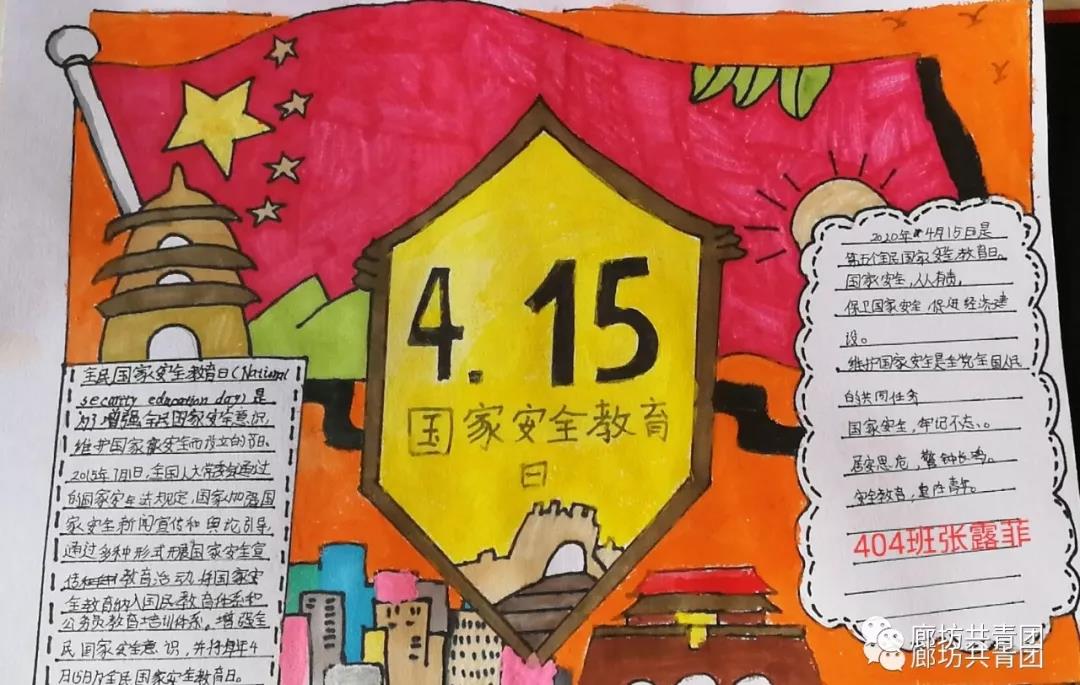 4.15
国家安全教育
日
全民国家安全教育日(National
security education day)是
为了增强全民国家安全意识,
维护国家安全而设立的节日。
2015年7月1日,全国人大常委会通过
的国家安全法规定,国家加强国
家安全新闻宣传和舆论引导,
通过多种形式开展国家安全宣
传教育活动,将国家安
全教育纳入国民教育体系和
公务员教育培训体系,增强全
民国家安意识,并将每年4
月15日为全民国家安全教育日。
2020年4月15日是
第五个全民国家安全教育日。
国家安全,人人有责,
保卫国家安全,促进经济建
设。
维护国家安全是全党全国人民
的共同任务
国家安全,牢记不忘。
居安思危,警钟长鸣。
安全教育,
404班张露菲
廊坊共青团
廊坊共青团